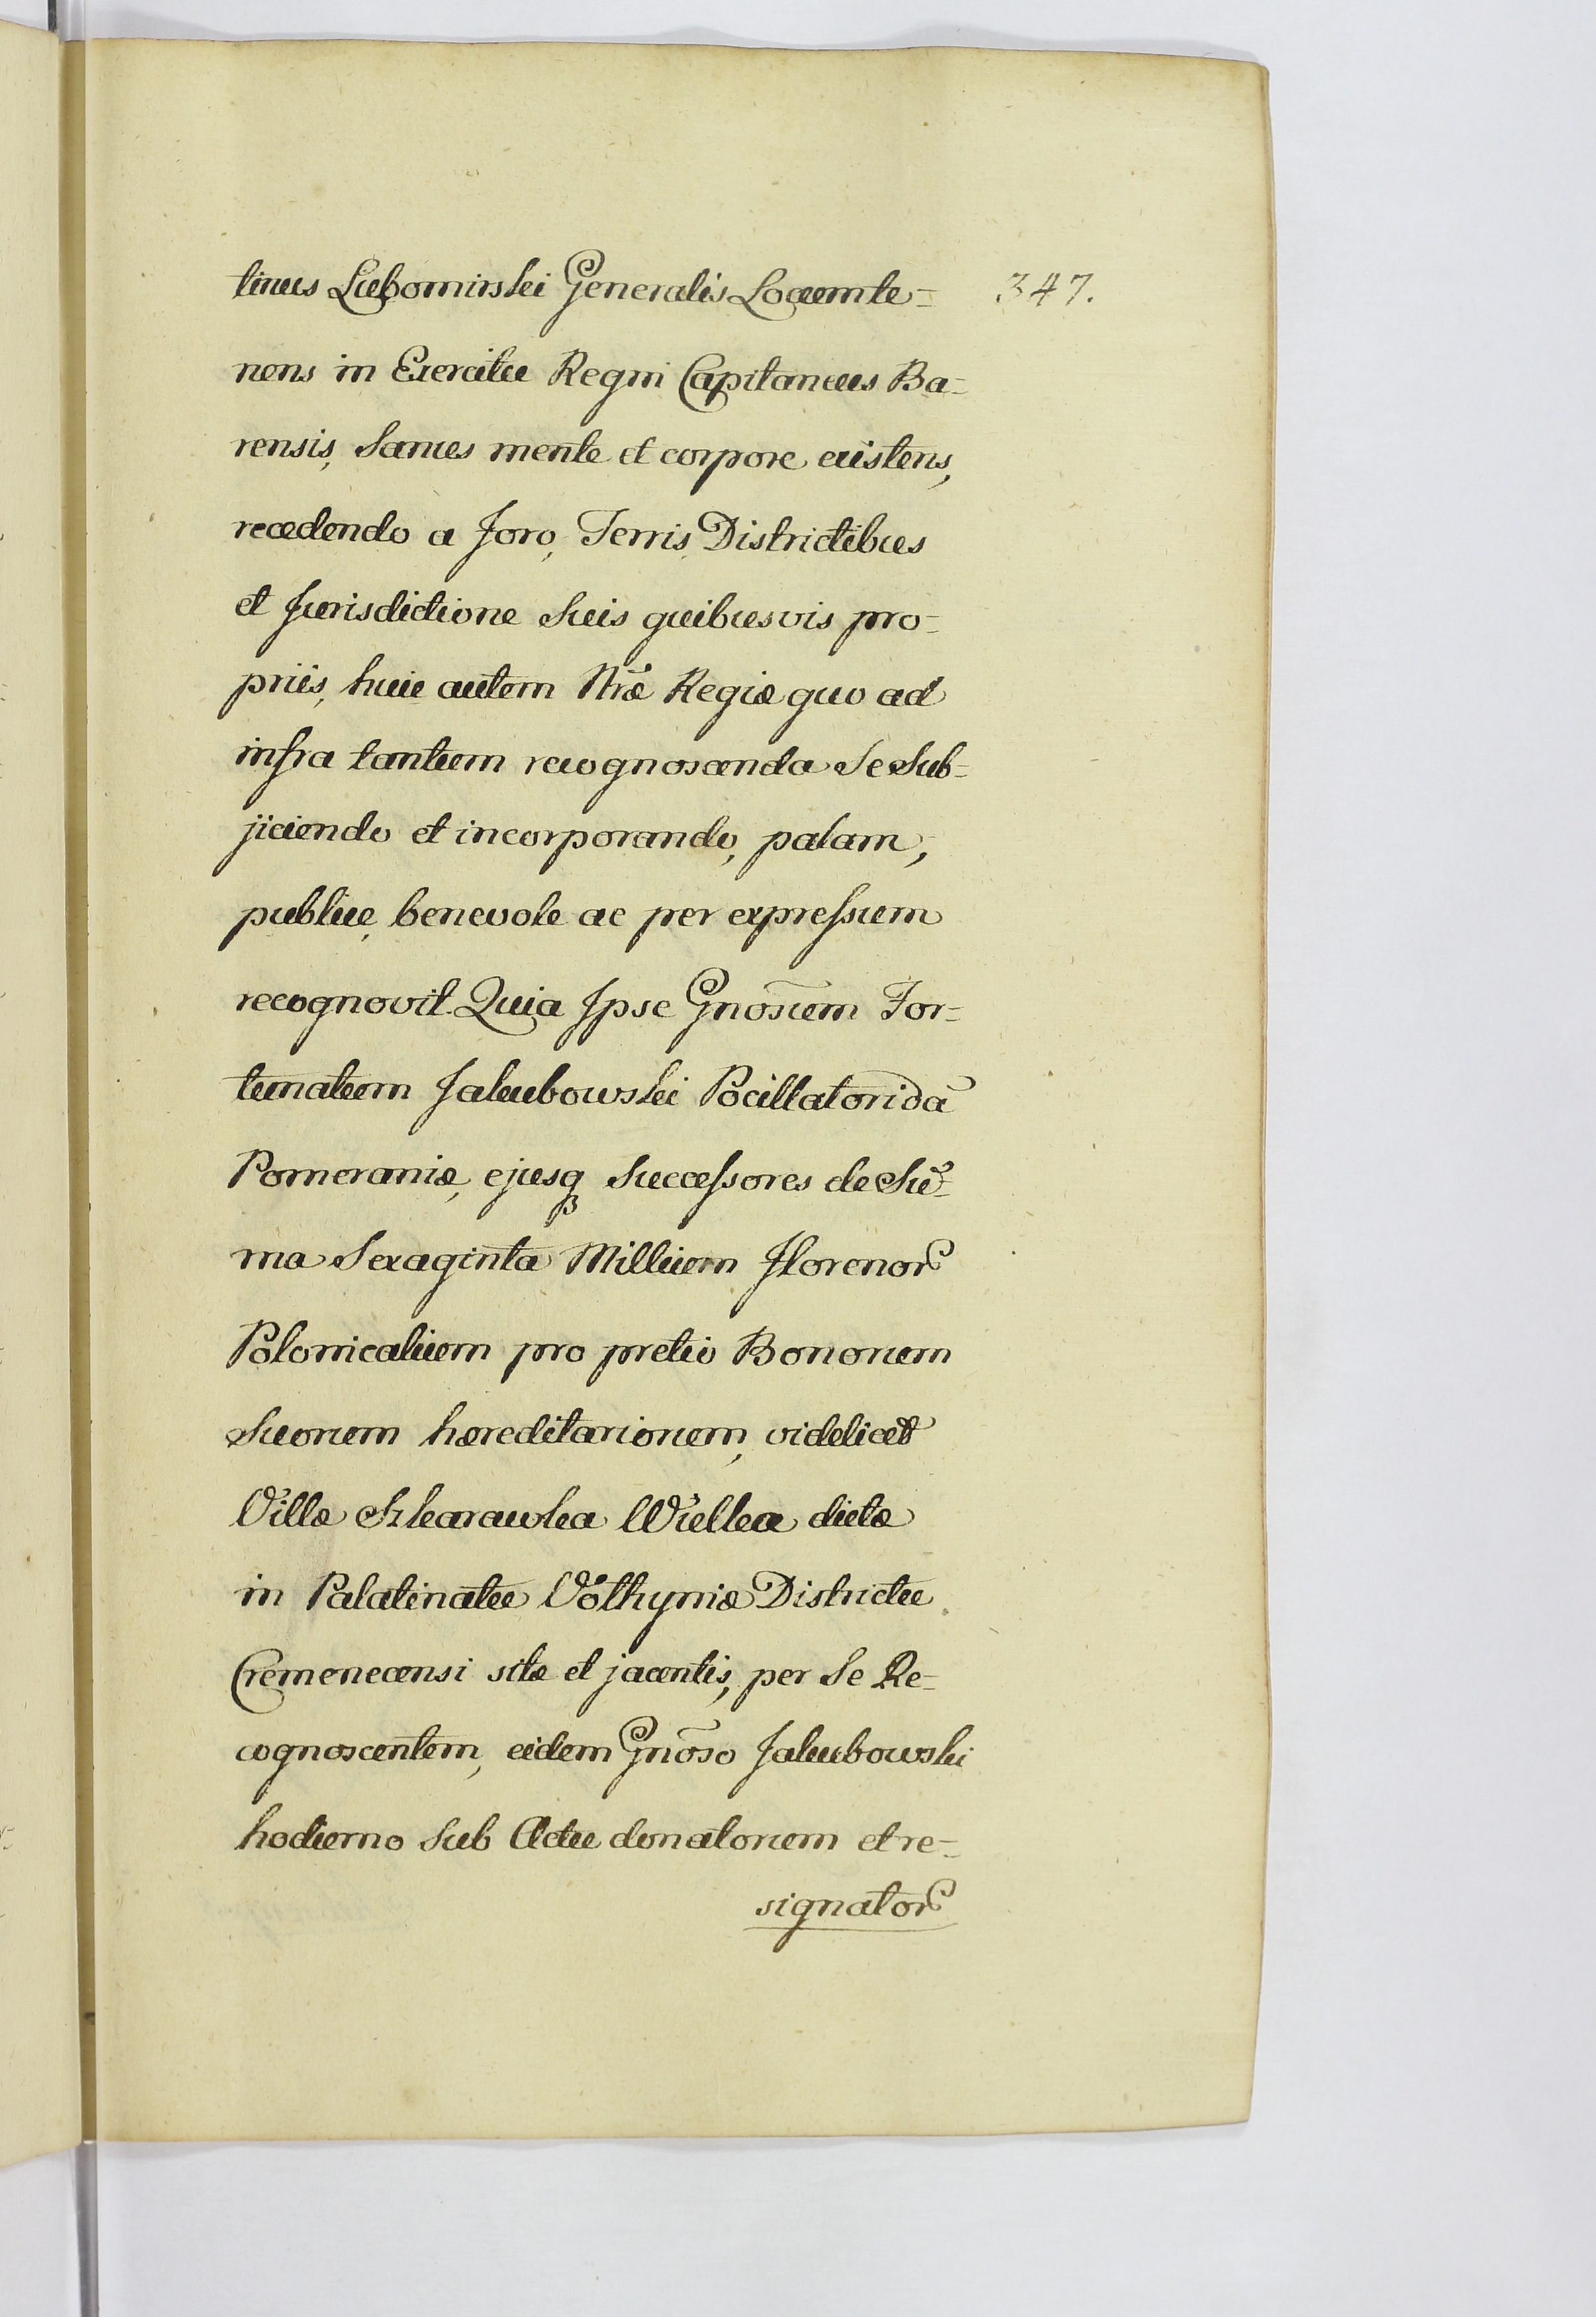 tinus Lubomirski Generalis Locumte=
347.
nens in Exercitu Regni Capitaneus Ba=
rensis, Sanus mente et corpore existens,
recedendo a foro, Terris, Districtibus
et Jurisdictione Suis quibusvis pro=
priis, huic autem Nrae Regiae quo ad
infra tantum recognoscenda Se Sub=
jiciendo et incorporando, palam,
publice, benevole ac per expressum
recognovit. Quia Ipse Gnosum For=
tunatum Jakubowski Pocillatoridam
Pomeraniae, ejusq successores de Su=
ma Sexaginta Millium florenor
Polonicalium pro pretio Bonorum
Suorum haereditariorum, videlicet
Villae Szkarawka Wielka dictae
in Palatinatu Volhyniae Districtu
Cremenecensi sitae et jacentis, per Se Re=
cognoscentem, eidem Gnoso Jakubowski
hodierno Sub Actu donatorum et re=
signator